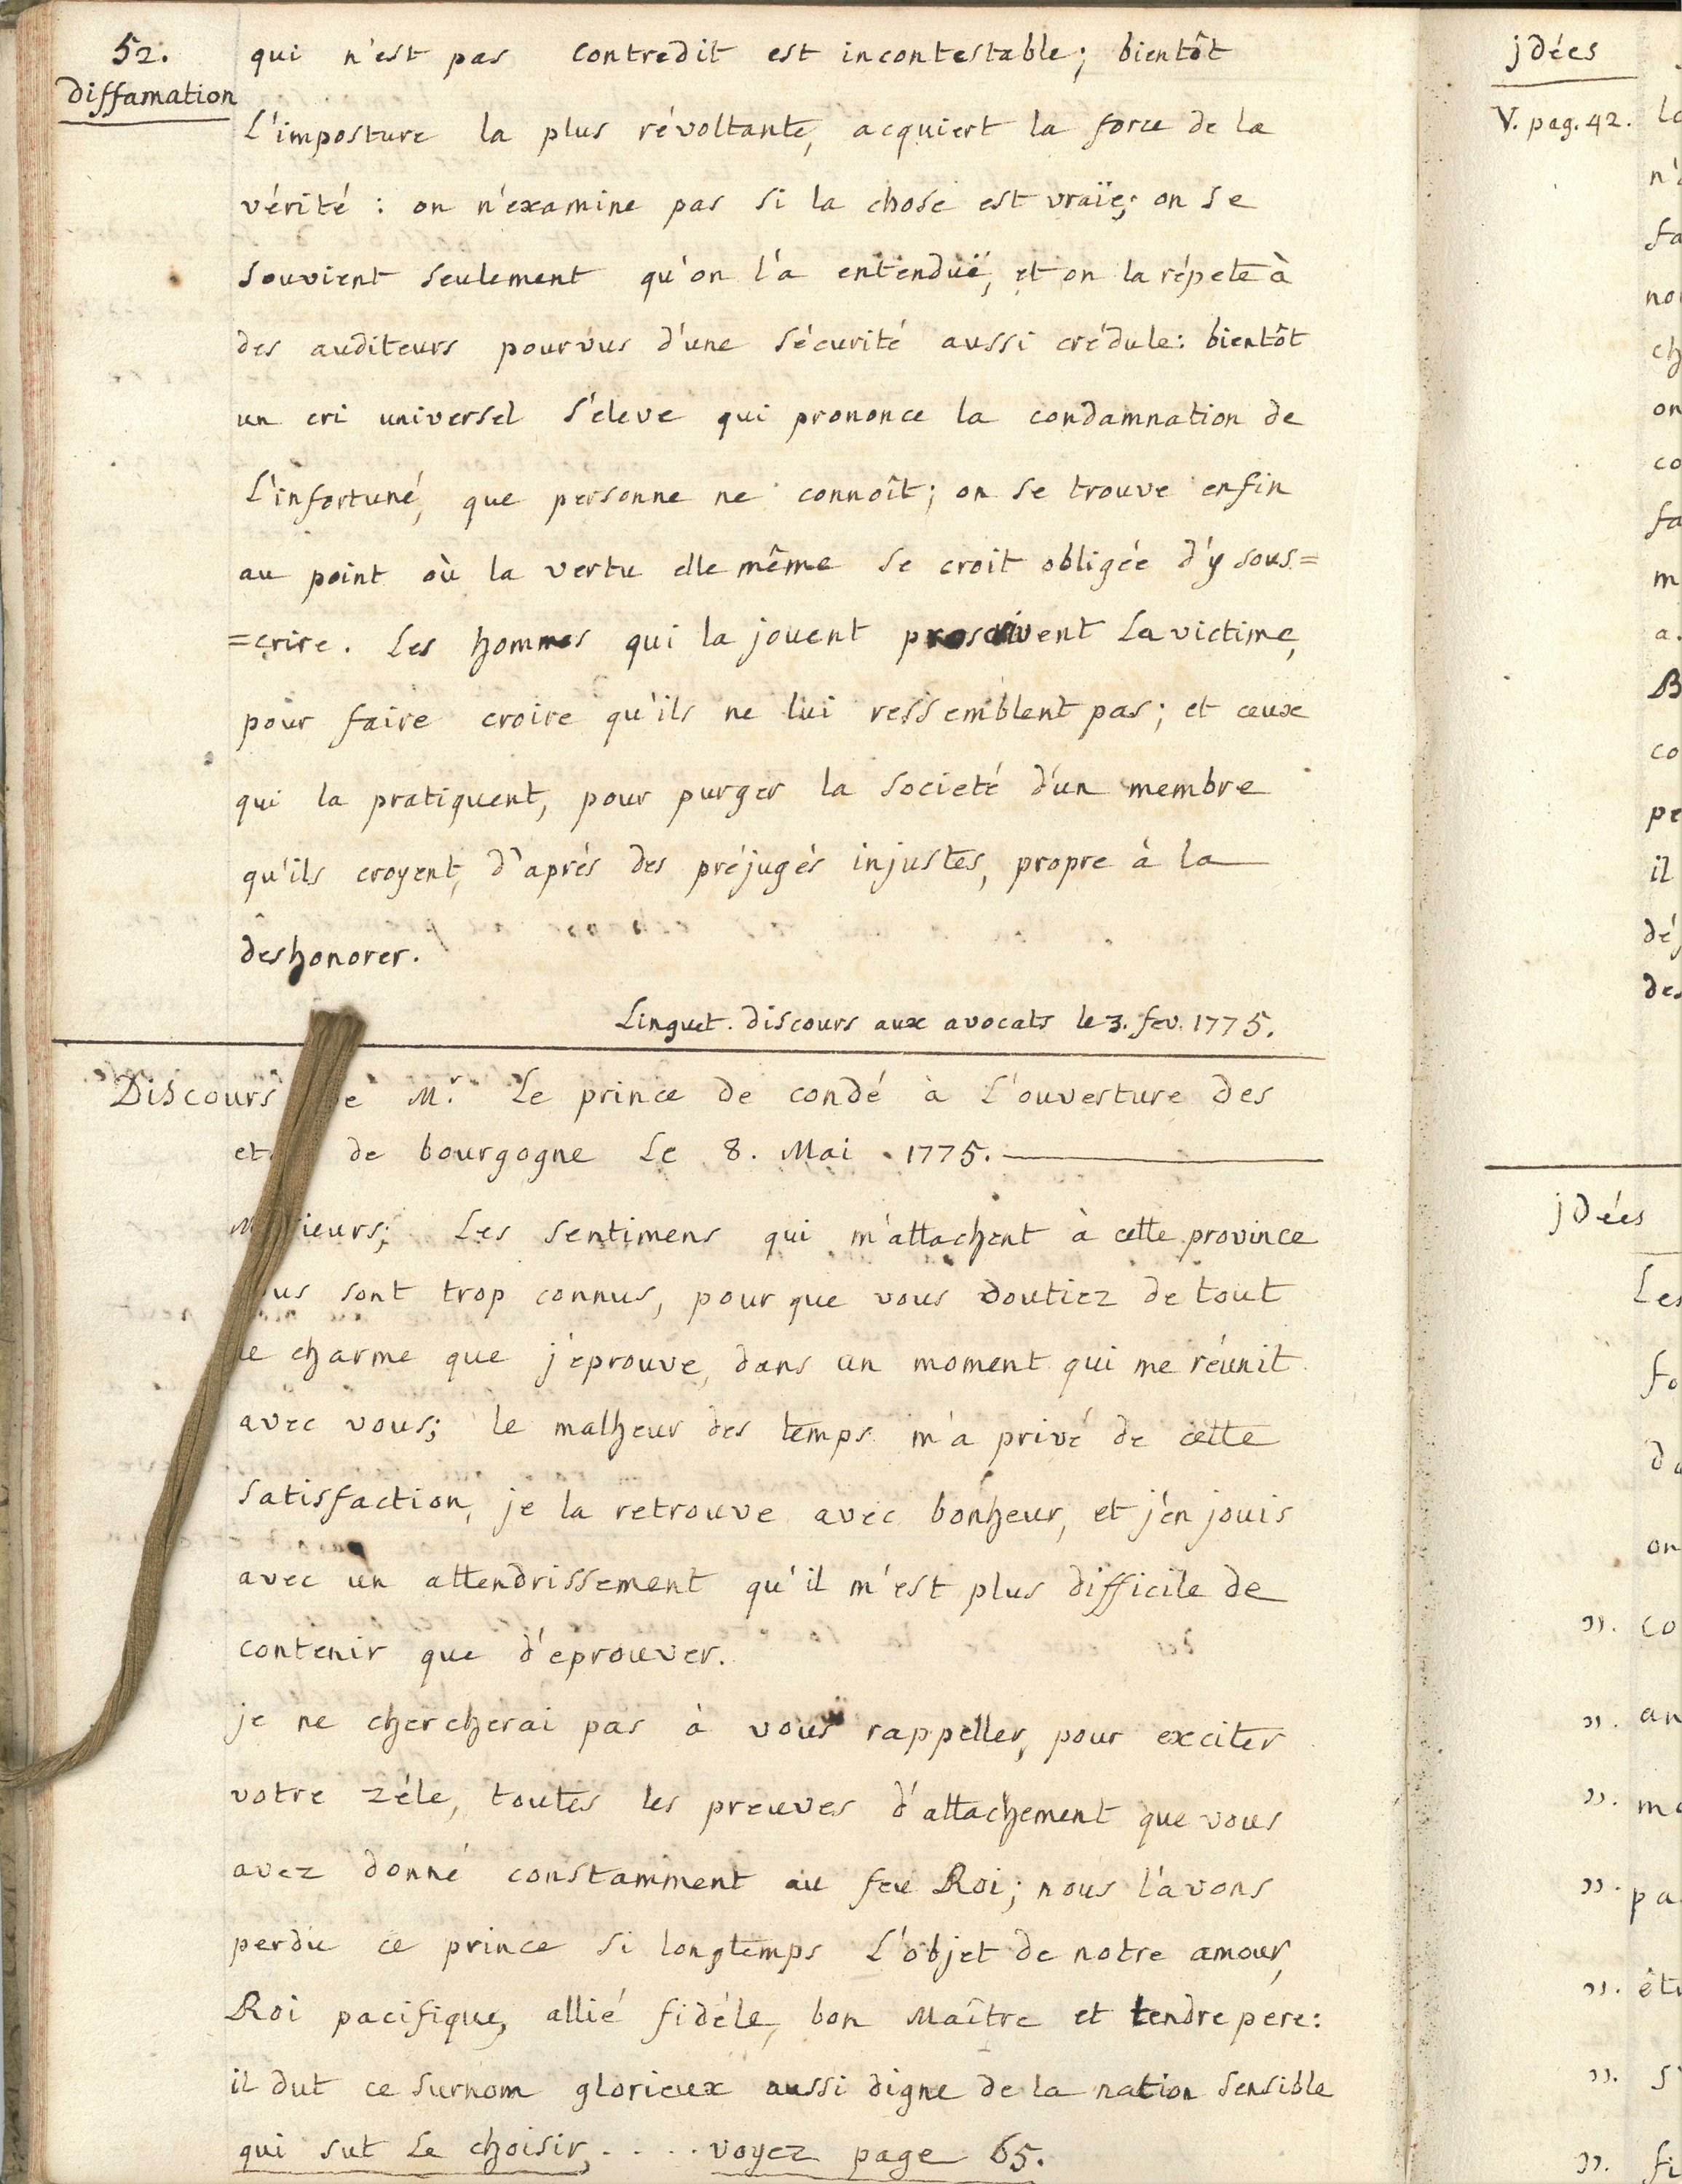 52.
diffamation
qui n'est pas contredit est incontestable; bientôt
L'imposture la plus révoltante, acquiert la force de la
vérité : on n'examine pas si la chose est vraïe; on se
souvient seulement qu'on l'a entenduë, et on la répete à
des auditeurs pourvus d'une sécurité aussi crédule: bientôt
un cri universel s'eleve qui prononce la condamnation de
L'infortuné, que personne ne connoît; on se trouve enfin
au point où la vertu elle même se croit obligée d'y sous=
=crire. Les hommes qui la jouent proscrivent La victime,
pour faire croire qu'ils ne lui ressemblent pas; et ceux
qui la pratiquent, pour purger la societé d'un membre
qu'ils croyent, d'aprés des préjugés injustes, propre à la
deshonorer.
Linguet. discours aux avocats le 3. fev. 1775.
Discours e Mr. Le prince de condé à L'ouverture des
et de bourgogne Le 8. Mai 1775.
M ieurs; Les sentimens qui m'attachent à cette province
us sont trop connus, pour que vous doutiez de tout
le charme que j'éprouve, dans un moment qui me réunit
avec vous; le malheur des temps m'a privé de cette
satisfaction, je la retrouve avec bonheur, et j'en jouis
avec un attendrissement qu'il m'est plus difficile de
contenir que d'eprouver.
je ne chercherai pas à vous rappeller, pour exciter
votre zéle, toutes les preuves d'attachement que vous
avez donné constamment au feu Roi; nous l'avons
perdu ce prince si longtemps L'objet de notre amour,
Roi pacifique, allié fidéle, bon Maître et tendre pere:
il dut ce surnom glorieux aussi digne de la nation sensible
qui sut Le choisir, . . . . voyez page 65.
jdées
V. pag. 42.
la
n'
fa
no
ch
on
co
fa
m
a.
B
co
pe
il
dé
des
jdées
Les
fo
da
on
". co
". an
". ma
". pa
". êt
". s
". fi